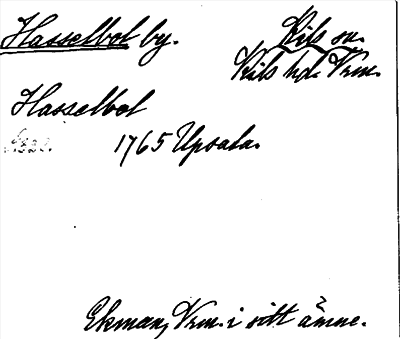 Hasselbol by. Kils sn.
Kils hd. Vrm.
Hasselbol
1765 Upsala.
Ekman, Vrm. i sitt ämne.